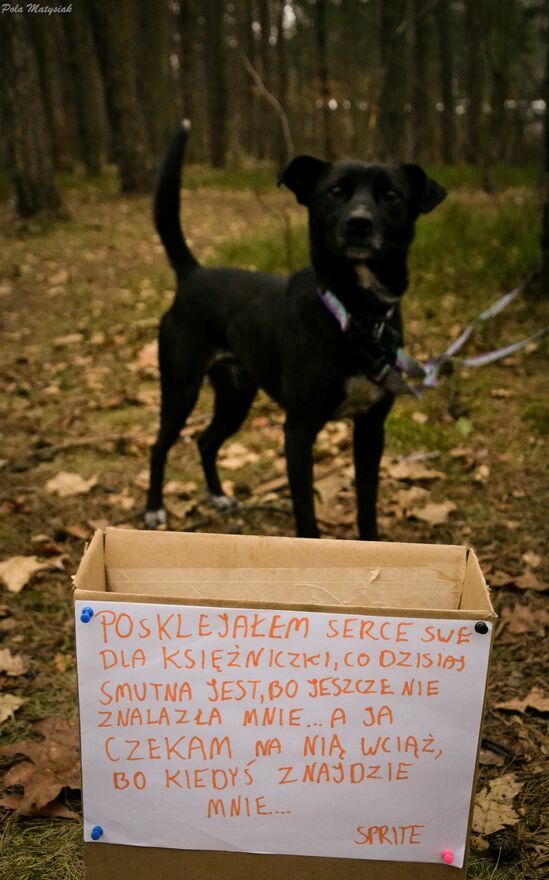 Pola Matysiak
POSKLEJAŁEM SERCE SWE
DLA KSIĘŻNICZKI, CO DZISIAJ
SMUTNA JEST, BO JESZCZE NIE
ZNALAZŁA MNIE... A JA
CZEKAM NA NIĄ WCIĄŻ,
BO KIEDYŚ ZNAJDZIE
MNIE....
SPRITE